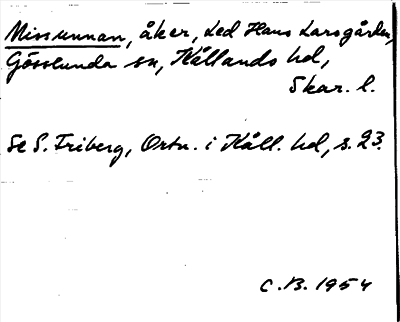 Missunnan, åker, Led Hans Larsgården,
Gösslunda sn, Kållands hd,
Skar. l.
Se S. Friberg, Ortn. i Kåll. hd, s. 23.
C.B. 1954